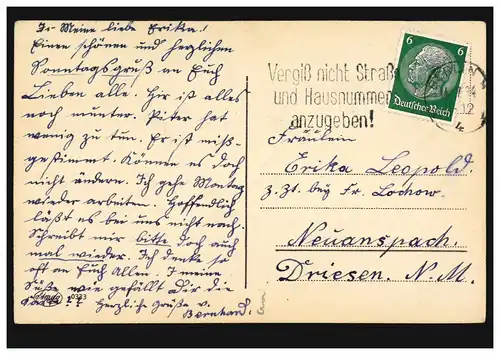 Meine liebe Erika!
Einen schönen und herzlichen
Sonntagsgruß an Euch
Lieben alle. Hier ist alles
noch munter. Peter hat
wenig zu tun. Er ist miß-
gestimmt. Können es doch
nicht ändern. Ich gehe Montag
wieder arbeiten. Hoffentlich
läßt es bei uns nicht nach.
Schreibt mir bitte doch auch
mal wieder. Ich denke so
oft an Euch Allen. I meine
Süße wie gefällt Dir die
Karte?
Herzliche Grüße v.
Bernhard.
9333
Vergiß nicht Straße
und Hausnummer
anzugeben!
6 6
Deutsches Reich
12
Fräulein
Erika Leopold.
z. Zt. bei Fr. Lochow.
Neuanspach.
Driesen. N. M.